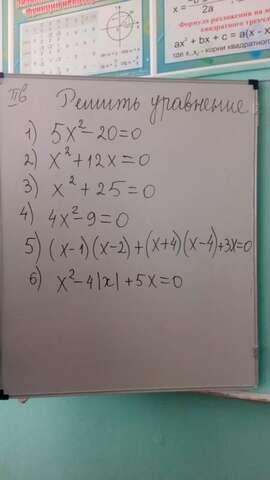 2a
Формула разложения на м
квадратного трех
ax² + bx + c = a(x - x
- корни квадратног
IIв Решить уравнение
1) 5x² - 20 = 0
2) x² + 12x = 0
3) x² + 25 = 0
4) 4x² - 9 = 0
5) (x-1)(x-2) + (x+4)(x-4) + 3x = 0
6) x² - 4|x| + 5x = 0